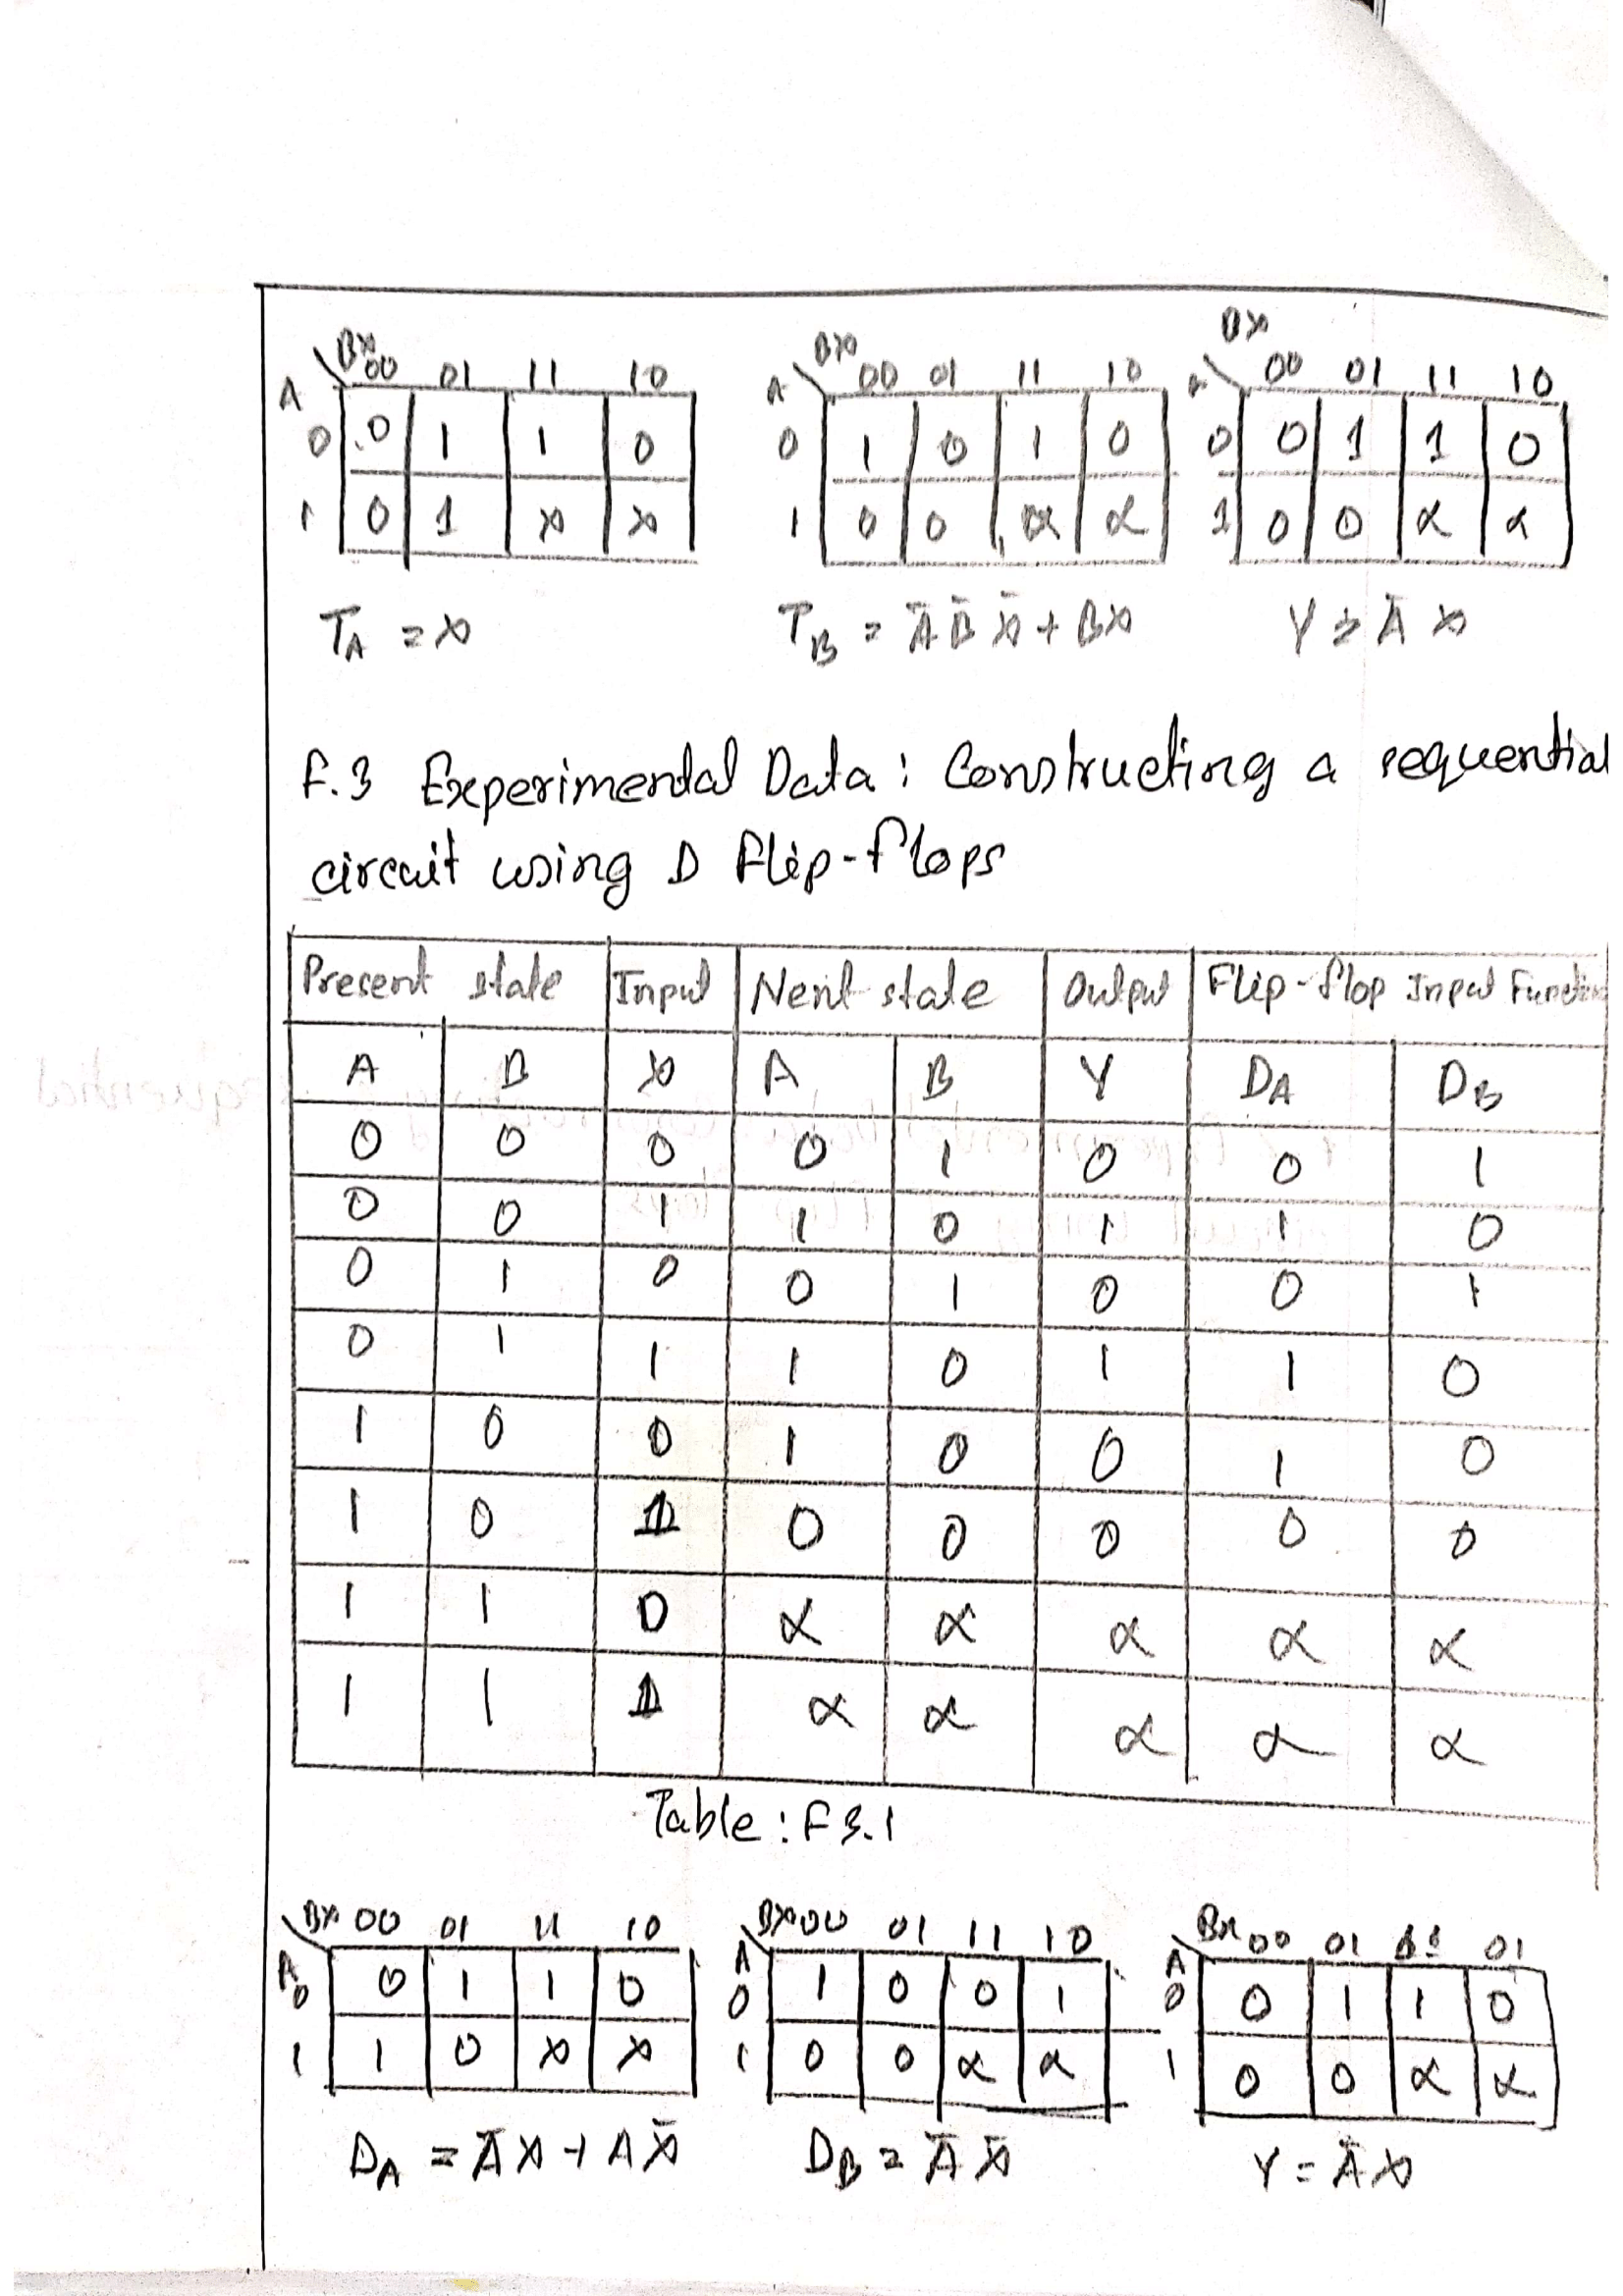 Bx 00 01 11 10
A
0 0 1 1 0
1 0 1 x x
TA = x
Bx 00 01 11 10
A
0 1 0 1 0
1 0 0 x x
TB = ĀB̄x̄ + Bx
Bx 00 01 11 10
A
0 0 1 1 0
1 0 0 x x
Y = Āx
F.3 Experimental Data : Constructing a sequential
circuit using D Flip-flops
Present state Input Next state Output Flip-flop Input Function
A B x A B Y DA DB
0 0 0 0 1 0 0 1
0 0 1 1 0 1 1 0
0 1 0 0 1 0 0 1
0 1 1 1 0 1 1 0
1 0 0 1 0 0 1 0
1 0 1 0 0 0 0 0
1 1 0 x x x x x
1 1 1 x x x x x
Table : F 3.1
Bx 00 01 11 10
A
0 0 1 1 0
1 1 0 x x
DA = Āx + Ax̄
Bx 00 01 11 10
A
0 1 0 0 1
1 0 0 x x
DB = Āx̄
Bx 00 01 11 01
A
0 0 1 1 0
1 0 0 x x
Y = Āx